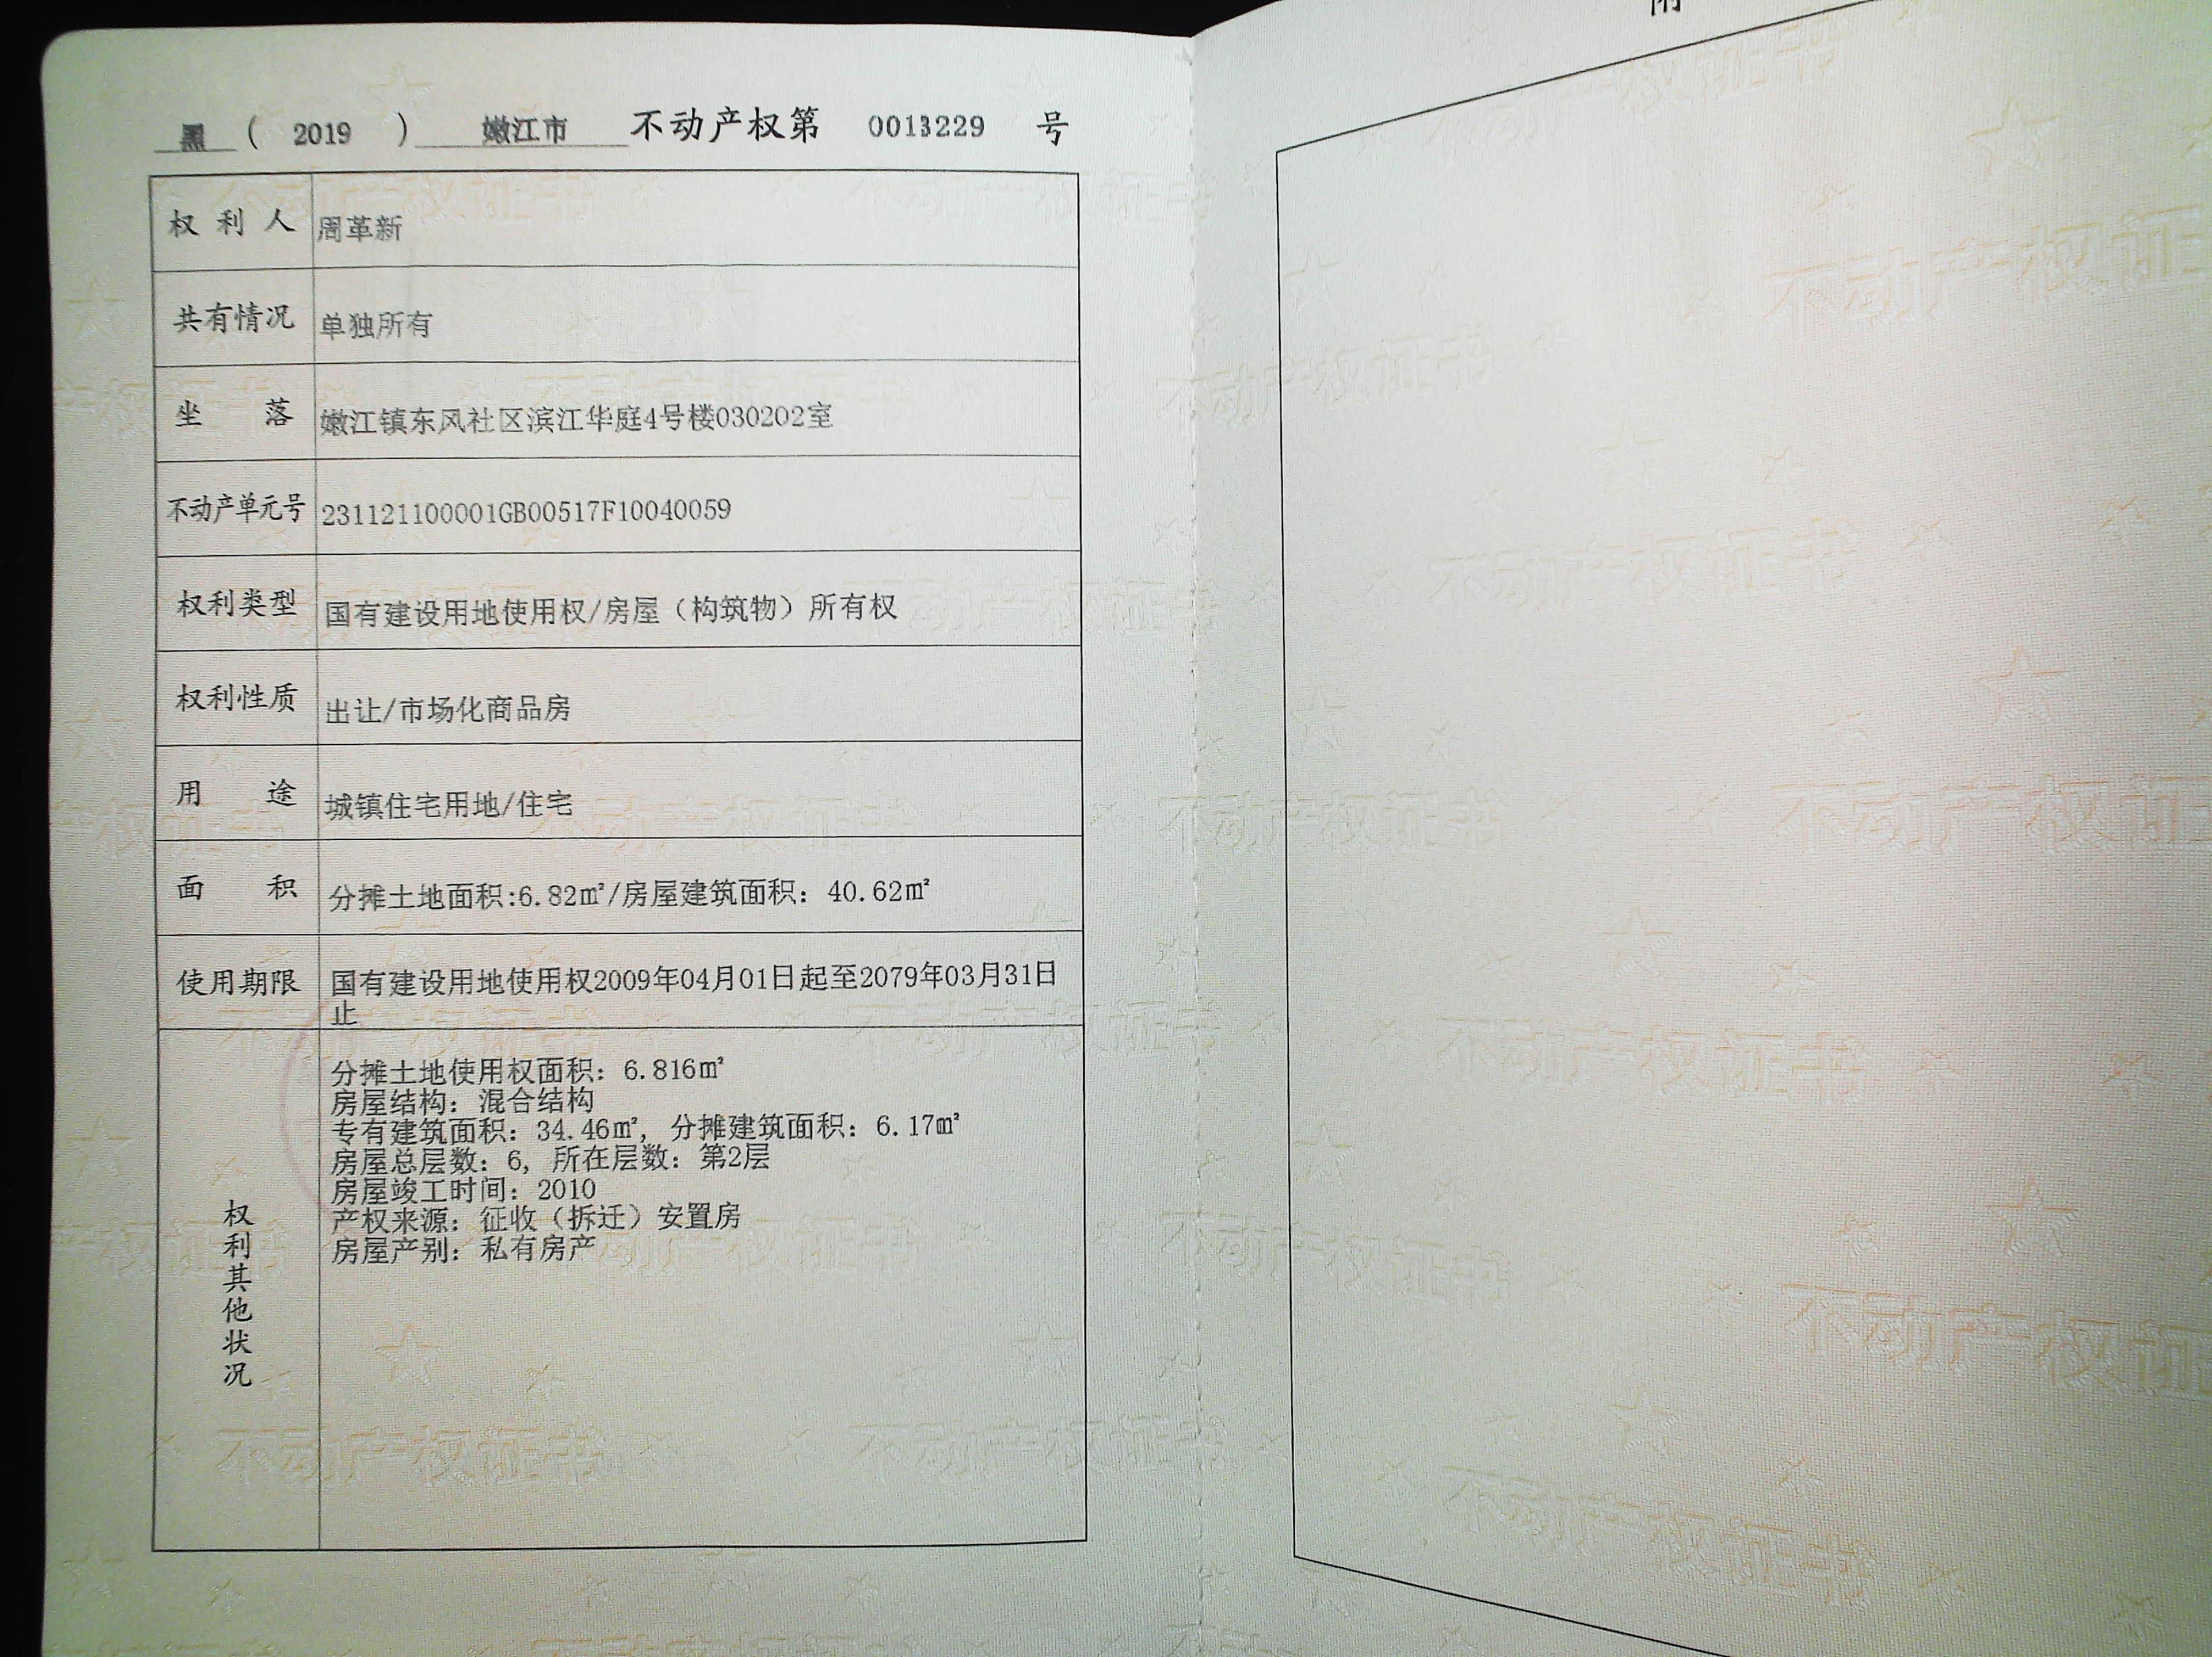 黑 ( 2019 ) 嫩江市 不动产权第 0013229 号
权利人 周革新
共有情况 单独所有
坐落 嫩江镇东风社区滨江华庭4号楼030202室
不动产单元号 231121100001GB00517F10040059
权利类型 国有建设用地使用权/房屋（构筑物）所有权
权利性质 出让/市场化商品房
用途 城镇住宅用地/住宅
面积 分摊土地面积:6.82㎡/房屋建筑面积：40.62㎡
使用期限 国有建设用地使用权2009年04月01日起至2079年03月31日
止
权利其他状况
分摊土地使用权面积：6.816㎡
房屋结构：混合结构
专有建筑面积：34.46㎡，分摊建筑面积：6.17㎡
房屋总层数：6，所在层数：第2层
房屋竣工时间：2010
产权来源：征收（拆迁）安置房
房屋产别：私有房产
不动产权证书